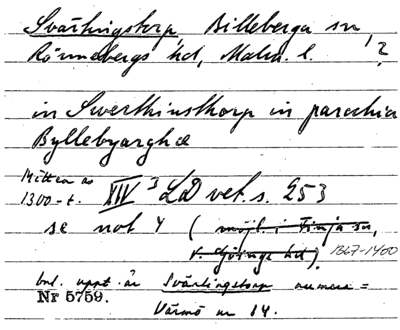 Svärlingstorp, Billeberga sn,
Rönnebergs hd, Malm. l. ?
in Swerthinsthorp in parochia
Byllebyarghæ
Mitten av
1300-t. XIV 3 LD vet. s. 253
se not 4 (möjl. i Finja sn,
V. Göinge hd). 1367-1400
enl. uppt. är Svärlingstorp numera =
Nr 5759.
Värmö nr 14.